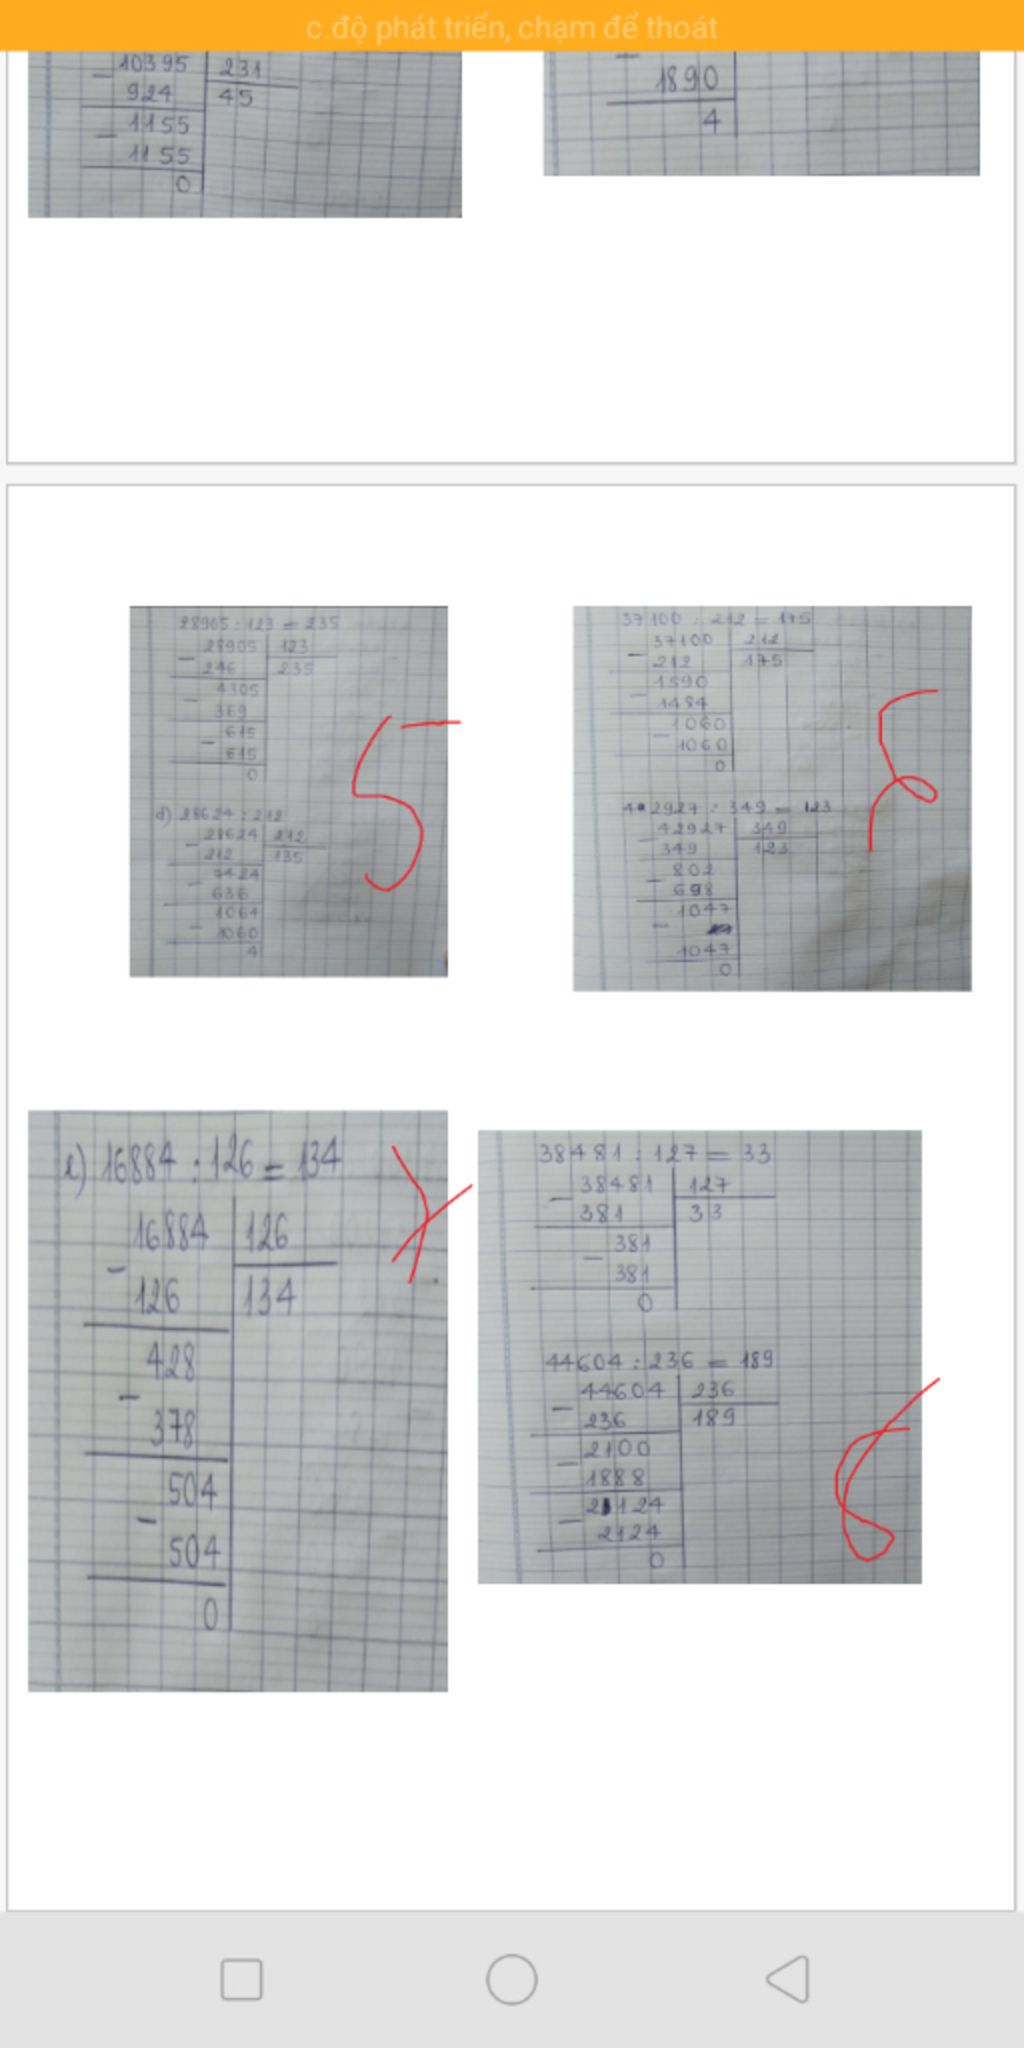 c.độ phát triển, chạm để thoát
10395 231
924 45
1155
1155
0
1890
4
28905 : 123 = 235
28905 123
246 235
4305
369
615
615
0
d) 28624 : 212
28624 212
212 135
7424
636
1064
1060
4
5
37100 : 212 = 175
37100 212
212 175
1590
1484
1060
1060
0
42927 : 349 = 123
42927 349
349 123
802
698
1047
1047
0
6
e) 16884 : 126 = 134
16884 126
126 134
428
378
504
504
0
7
38481 : 127 = 33
38481 127
381 33
381
381
0
44604 : 236 = 189
44604 236
236 189
2100
1888
2124
2124
0
8